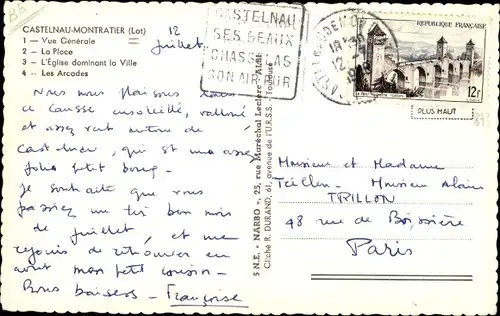 CASTELNAU-MONTRATIER (Lot)
1 – Vue Générale
2 – La Place
3 – L'Église dominant la Ville
4 – Les Arcades
12
juillet
CASTELNAU
SES BEAUX
CHASSELAS
SON AIR PUR
REPUBLIQUE FRANÇAISE
12F
PLUS HAUT
Nous nous plaisons dans
ce causse ensoleillé, vallonné
et assez vert autour de
Castelnau, qui est un assez
joli petit bourg –
Je souhaite que vous
passiez un très bon mois
de juillet, et me
réjouis de retrouver en
août mon petit cousin –
Bons baisers – Françoise
S.N.E. « NARBO », 25, rue Maréchal Leclerc - ALBI
Cliché R. DURAND, 61, avenue de l'U.R.S.S. - Toulouse
Monsieur et Madame
Teillon - Monsieur Alain
TRILLON
48 rue de Boissière
Paris